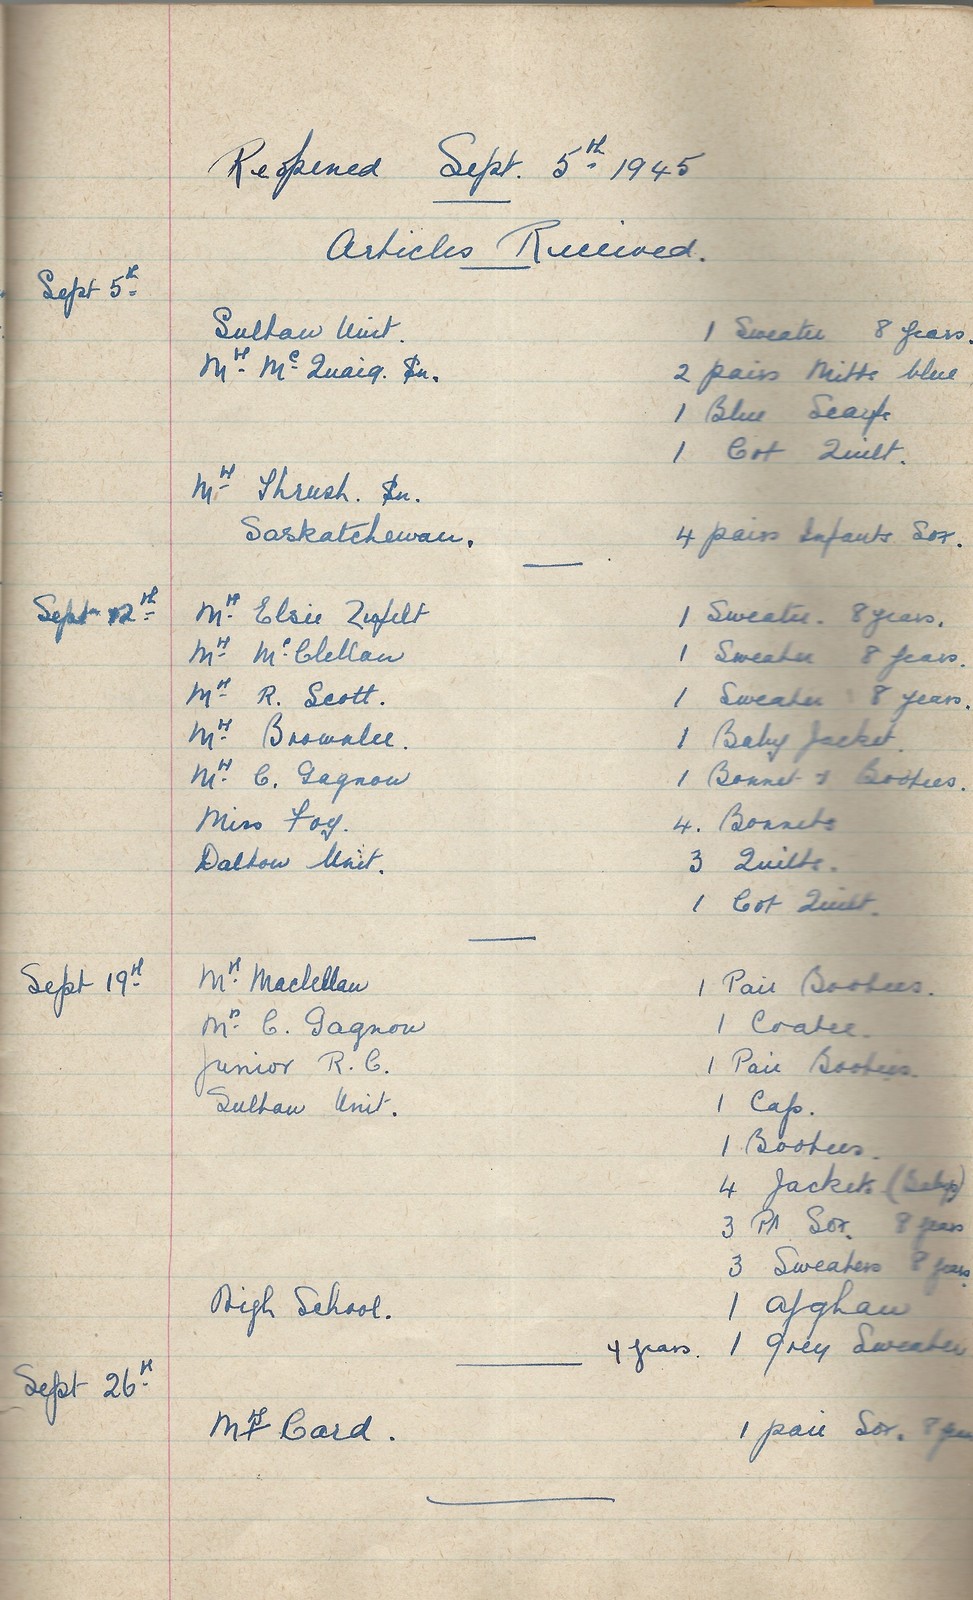 Reopened Sept. 5th 1945
Articles Received.
Sept 5th
Sultan Unit. 1 Sweater 8 years.
Mrs. McQuaig. Sn. 2 pairs Mitts blue
1 Blue Scarfe
1 Cot Quilt.
Mrs Thrush. Sn.
Saskatchewan. 4 pairs Infants Sox.
Sept 12th Mrs. Elsie Zufelt 1 Sweater. 8 years.
Mrs McClellan 1 Sweater 8 years.
Mrs R. Scott. 1 Sweater 8 years.
Mrs Brownlee. 1 Baby Jacket.
Mrs. C. Gagnon 1 Bonnet & Bootees.
Miss Foy. 4. Bonnets
Dalton Unit. 3 Quilts.
1 Cot Quilt.
Sept 19th Mrs. Maclellan 1 Pair Bootees.
Mrs. C. Gagnon 1 Coatee.
Junior R. C. 1 Pair Bootees.
Sultan Unit. 1 Cap.
1 Bootees.
4 Jackets (Baby)
3 Pr Sox. 8 years
3 Sweaters 8 years
High School. 1 Afghan
4 years. 1 Grey Sweater
Sept 26th
Mrs Card. 1 pair Sox. 8